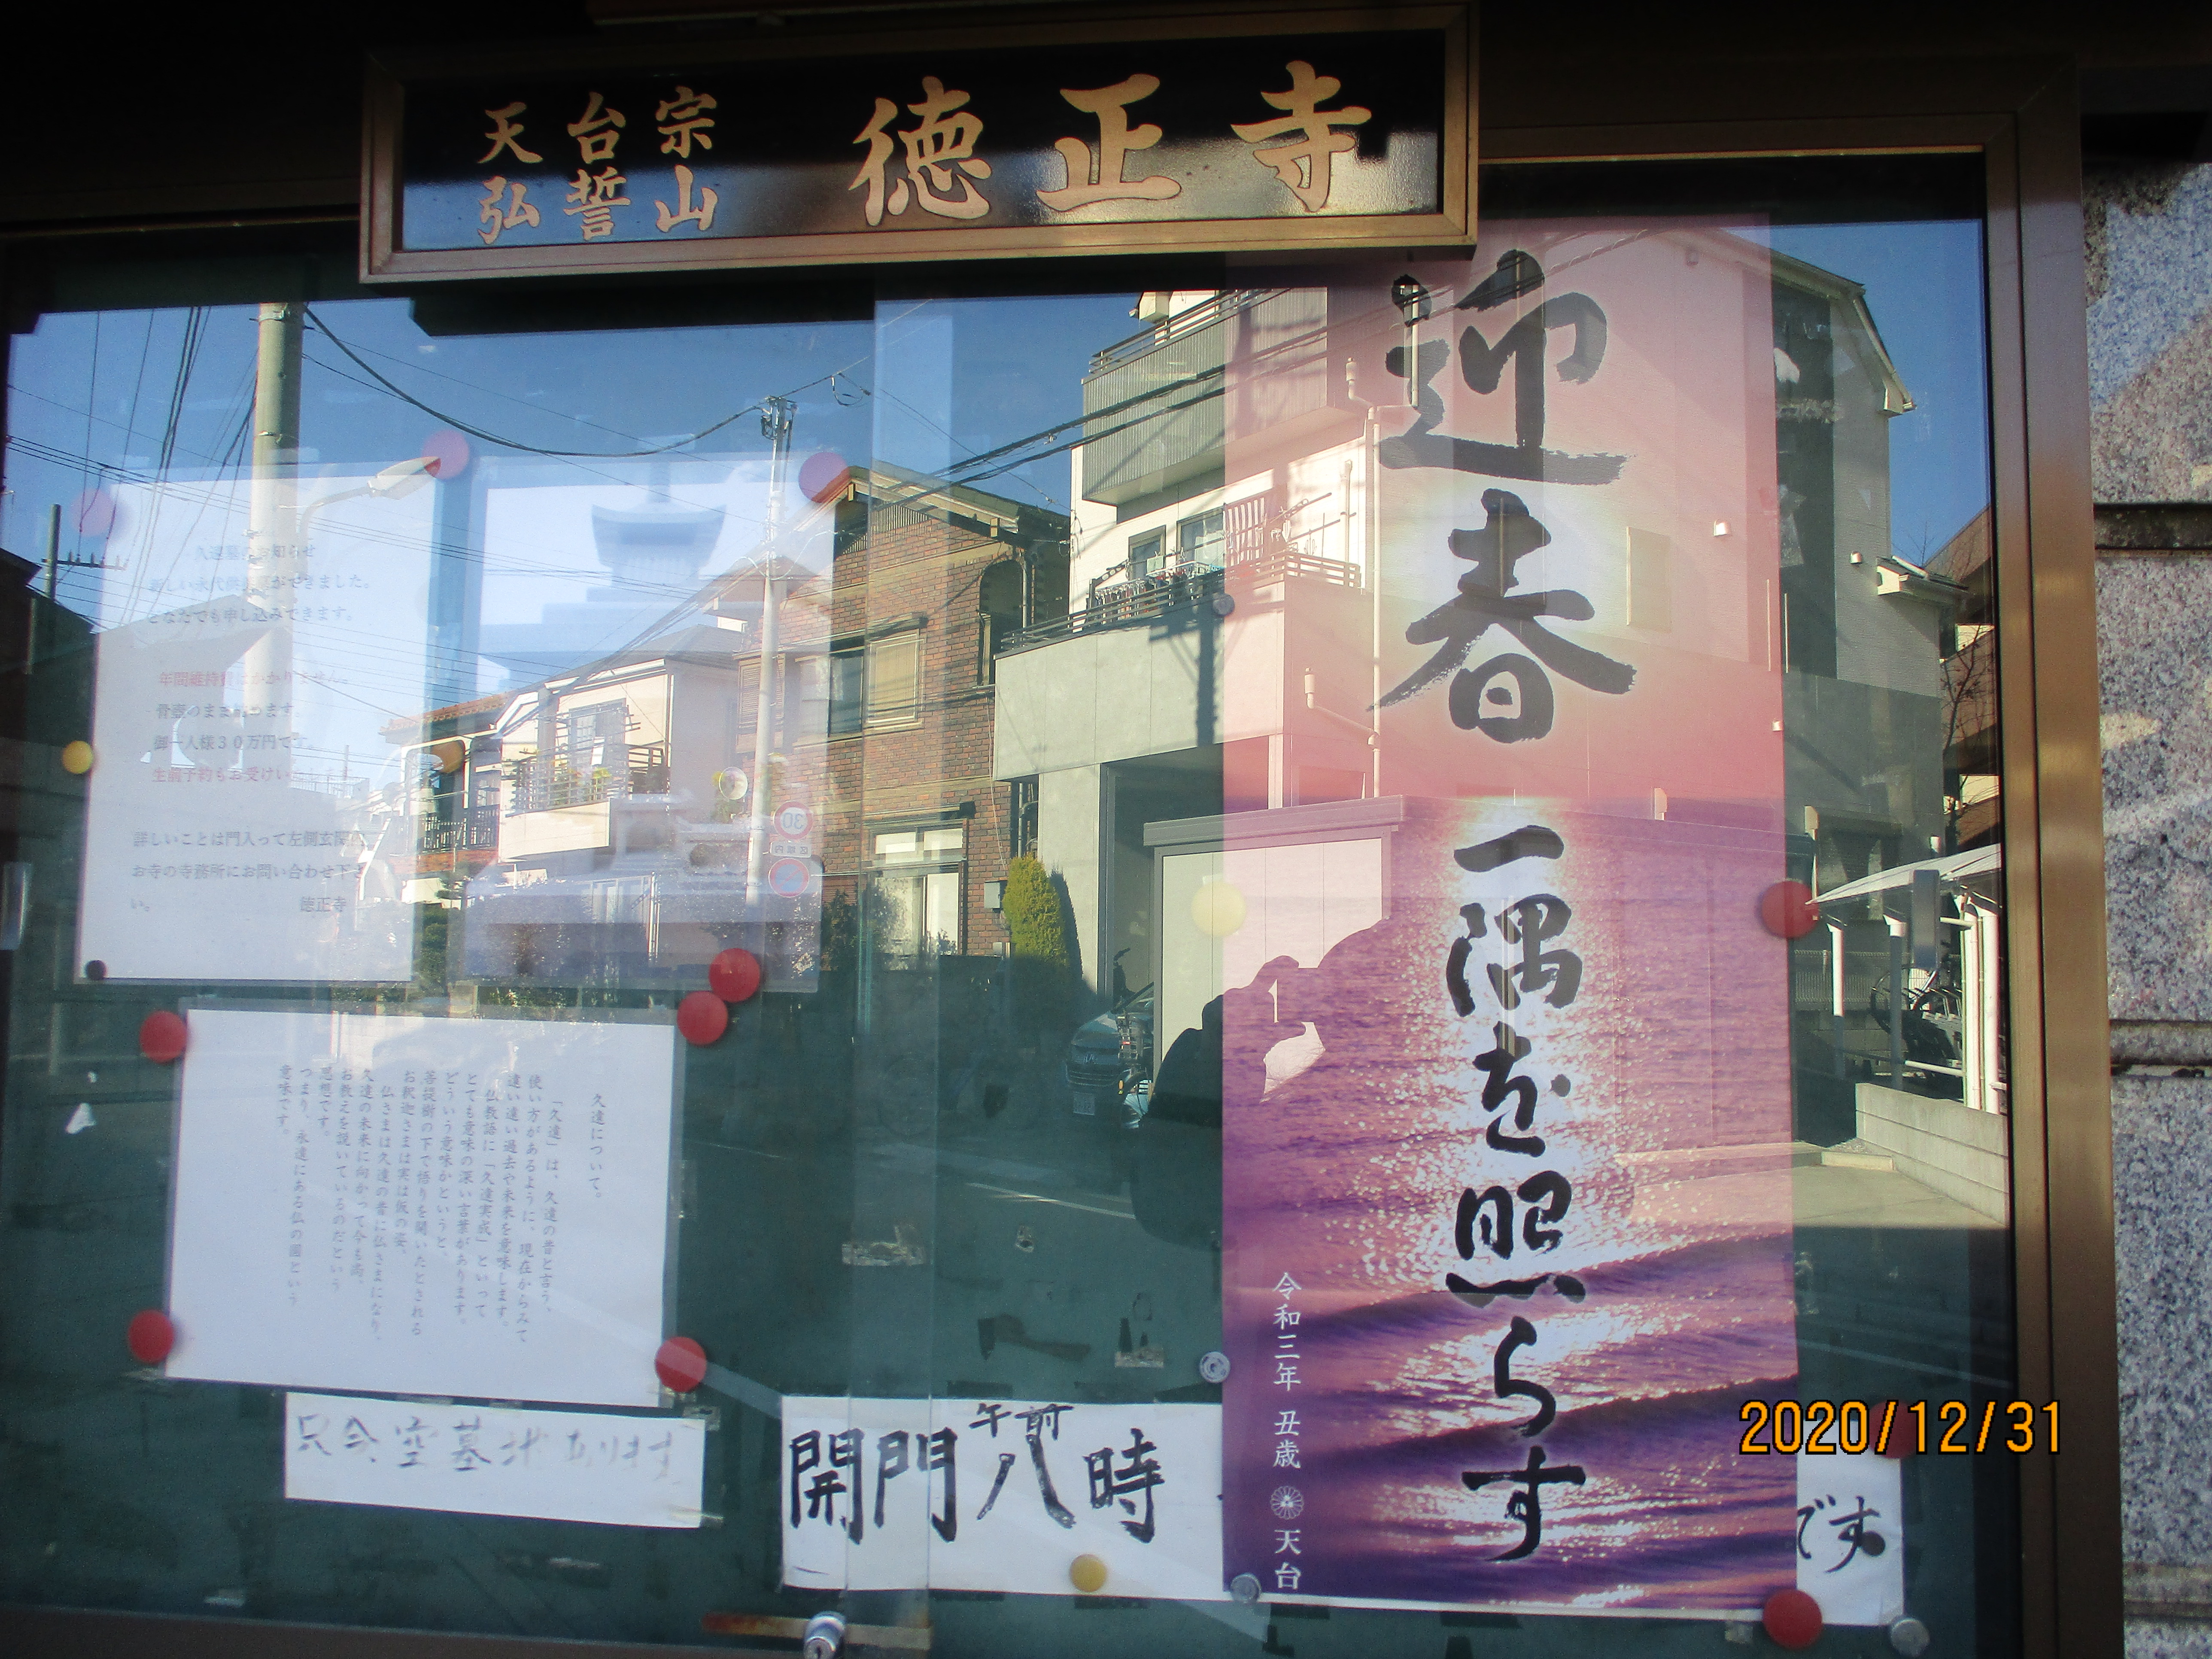 天台宗
弘誓山
徳正寺
迎春
一隅を照らす
令和三年 丑歳 天台
久遠墓のお知らせ
新しい永代供養墓ができました。
どなたでも申し込みできます。
年間維持費はかかりません。
骨壺のまま納めます。
御一人様30万円です。
生前予約もお受けいたします。
詳しいことは門入って左側玄関の
お寺の寺務所にお問い合わせ下さ
い。 徳正寺
久遠について。
「久遠」は、久遠の昔と言う、
使い方があるように、現在からみて
遠い遠い過去や未来を意味します。
仏教語に「久遠実成」といって
とても意味の深い言葉があります。
どういう意味かというと、
菩提樹の下で悟りを開いたとされる
お釈迦さまは実は仮の姿、
仏さまは久遠の昔に仏さまになり、
久遠の未来に向かって今も尚、
お教えを説いているのだという
思想です。
つまり、永遠にある仏の国という
意味です。
只今空墓地あります
開門午前八時
です
30
区域内
2020/12/31